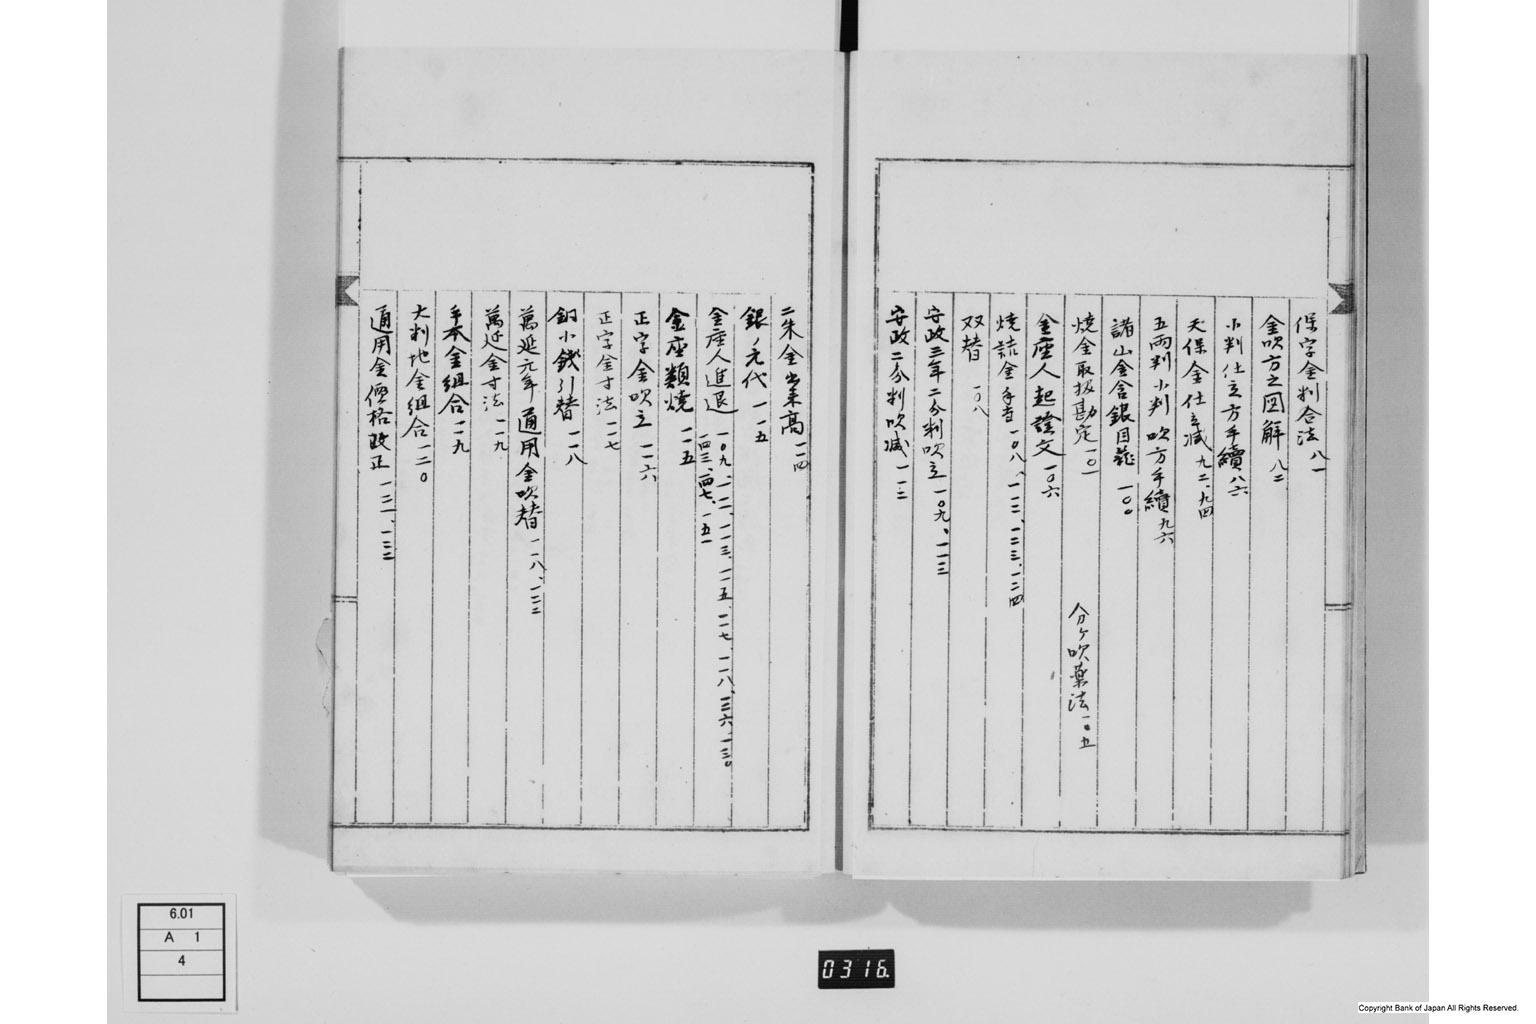 保字金判合法 八一
金吹方之図解 八二
小判仕立方手續 八六
天保金仕立減 九二、九四
五両判小判吹方手續 九六
諸山金含銀目 一〇〇
焼金取扱勘定 一〇一
分ケ吹薬法 一〇五
金座人起證文 一〇六
焼詰金手 一〇八、一二二、一二三、一二四
双替 一〇八
安政三年二分判吹立 一〇九、一一三
安政二分判吹減 一一二
二朱金出来高 一一四
銀ノ元代 一一五
金座人進退 一〇九、一一二、一一三、一一五、一一七、一一八、一二六、一三〇
一四三、一四七、一五一
金座類焼 一一五
正字金吹立 一一六
正字金寸法 一一七
銅小銭引替 一一八
萬延元年通用金吹替 一一八、一二二
萬延金寸法 一一九
手本金組合 一一九
大判地金組合 一二〇
通用金價格改正 一二一、一二二
6.01
A 1
4
0316.
Copyright Bank of Japan All Rights Reserved.